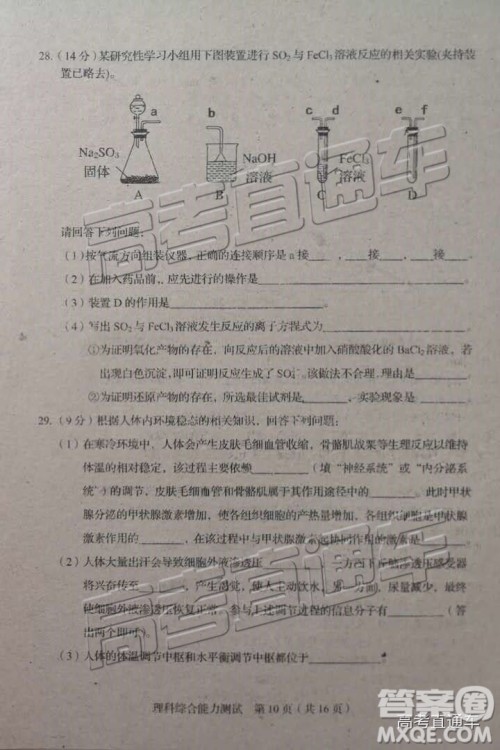 28.（14分）某研究性学习小组用下图装置进行SO₂与FeCl₃溶液反应的相关实验(夹持装
置已略去)。
a b c d e f
Na₂SO₃
固体
NaOH
溶液
FeCl₃
溶液
A B C D
请回答下列问题：
（1）按气流方向组装仪器，正确的连接顺序是a接____、____接____、____接____。
（2）在加入药品前，应先进行的操作是____
（3）装置D的作用是____
（4）写出SO₂与FeCl₃溶液发生反应的离子方程式为____
①为证明氧化产物的存在，向反应后的溶液中加入硝酸酸化的BaCl₂溶液，若
出现白色沉淀，即可证明生成了SO₄²⁻。该做法不合理，理由是____
②为证明还原产物的存在，所选最佳试剂是____，实验现象是____
29.（9分）根据人体内环境稳态的相关知识，回答下列问题：
（1）在寒冷环境中，人体会产生皮肤毛细血管收缩，骨骼肌战栗等生理反应以维持
体温的相对稳定，该过程主要依赖____（填“神经系统”或“内分泌系
统”）的调节，皮肤毛细血管和骨骼肌属于其作用途径中的____。此时甲状
腺分泌的甲状腺激素增加，使各组织细胞的产热量增加，各组织细胞是甲状腺
激素作用的____，在该过程中与甲状腺激素起协同作用的激素是____
（2）人体大量出汗会导致细胞外液渗透压____，下丘脑渗透压感受器
将兴奋传至____，产生渴觉，使人主动饮水。另一方面，尿量减少，最终
使细胞外液渗透压恢复正常。参与上述调节过程的信息分子有____（答
出两个即可）。
（3）人体的体温调节中枢和水平衡调节中枢都位于____
理科综合能力测试 第10页（共16页）
高考直通车
高考直通车
答案圈
MXQE.COM
高考直通车